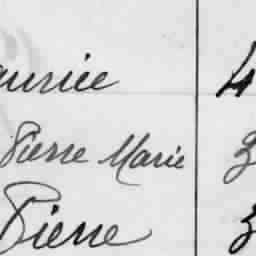 aurice 4
Pierre Marie 3
Pierre 3